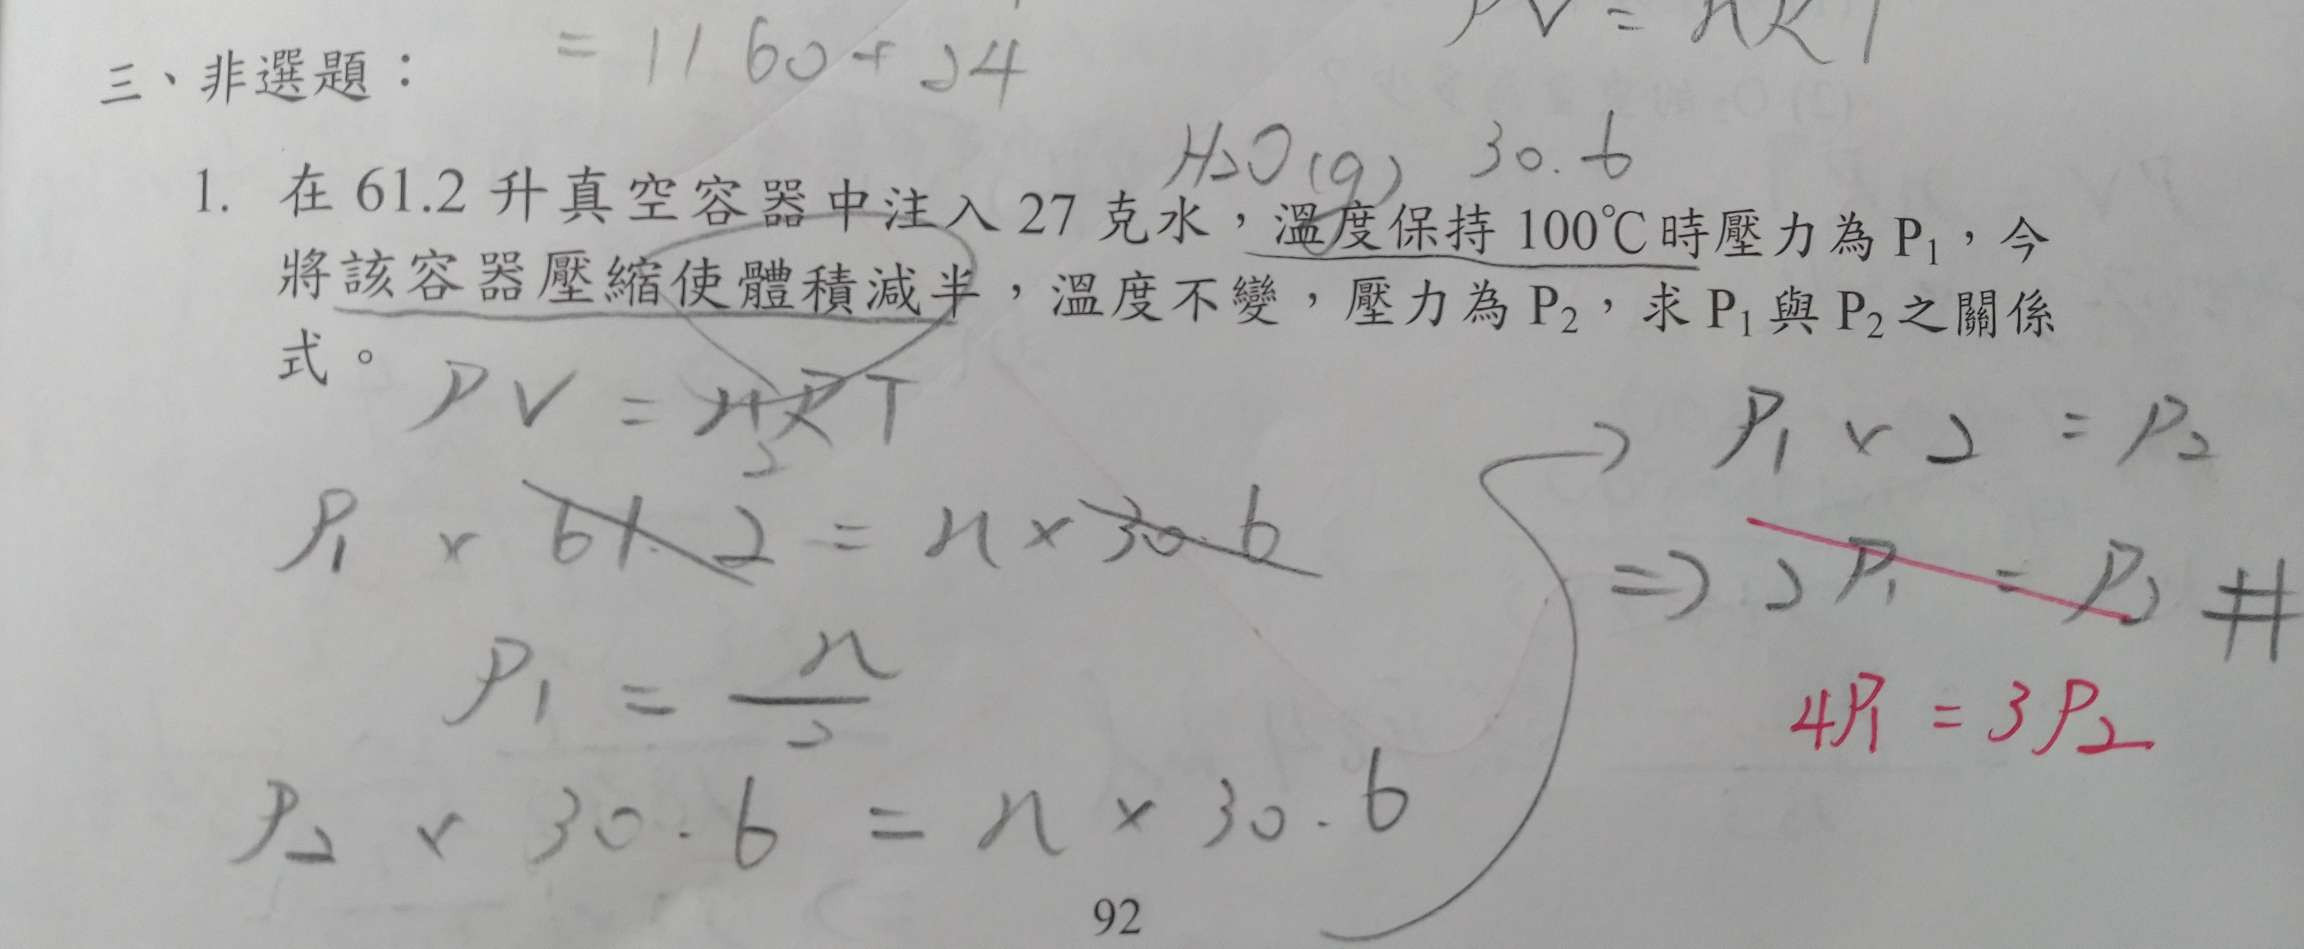 = 1160+24
PV = nRT
三、非選題：
H₂O(g) 30.6
1. 在 61.2 升真空容器中注入 27 克水，溫度保持 100℃時壓力為 P₁，今
將該容器壓縮使體積減半，溫度不變，壓力為 P₂，求 P₁與 P₂之關係
式。
PV = nRT
2
P₁ × 61.2 = n × 30.6
P₁ = n/2
P₂ × 30.6 = n × 30.6
P₁ × 2 = P₂
⇒ 2P₁ = P₂ #
4P₁ = 3P₂
92